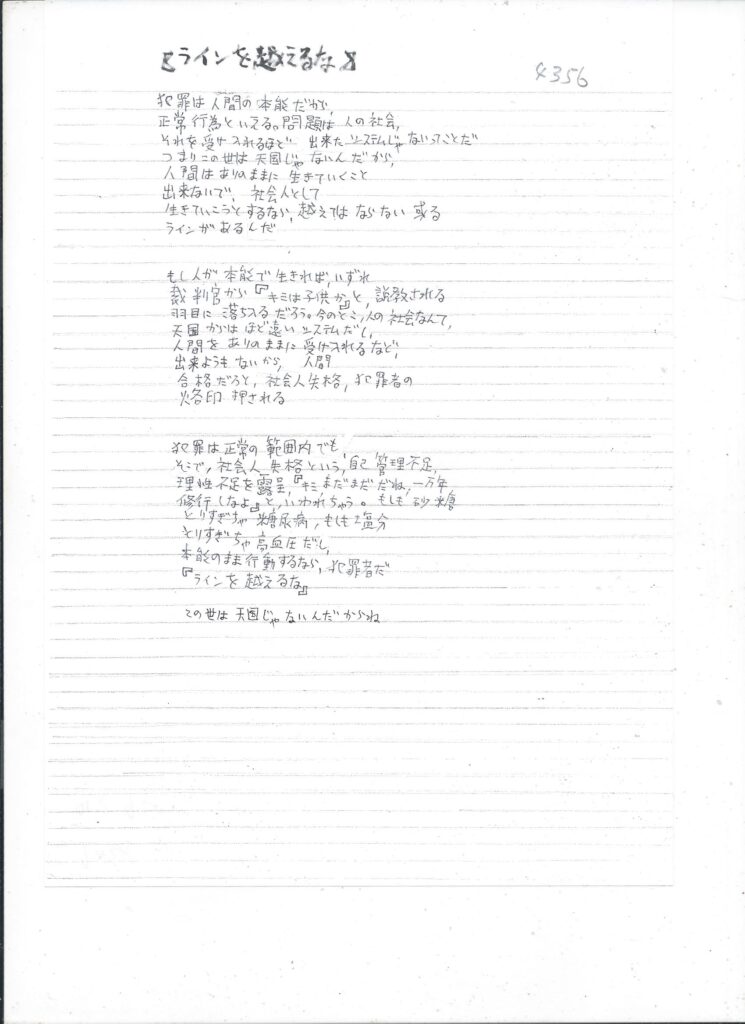 【ラインを越えるな】
4356
犯罪は人間の本能だから,
正常行為といえる。問題は人の社会,
それを受け入れるほど 出来たシステムじゃないってことだ
つまりこの世は天国じゃないんだから,
人間はありのままに生きていくこと
出来ないで, 社会人として
生きていこうとするなら, 越えてはならない或る
ラインがあるんだ
もし人が本能で生きれば, いずれ
裁判官から『キミは子供か』と, 説教される
羽目に落ち入るだろう。今のとこ, 人の社会なんて,
天国からはほど遠いシステムだし,
人間をありのままに受け入れるなど,
出来ようもないから, 人間
合格だろと, 社会人失格, 犯罪者の
烙印押される
犯罪は正常の範囲内でも,
そこで, 社会人失格という, 自己管理不足,
理性不足を露呈,『キミ, まだまだだね, 一万年
修行しなよ』と, いわれちゃう。もしも砂糖
とりすぎちゃ糖尿病, もしも塩分
とりすぎちゃ高血圧だし,
本能のまま行動するなら, 犯罪者だ
『ラインを越えるな』
この世は天国じゃないんだからね